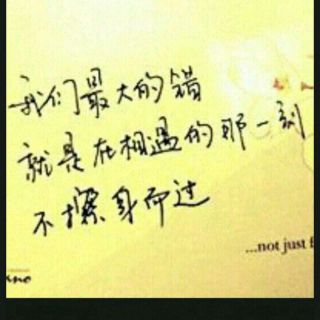 我们最大的错
就是在相遇的那一刻
不擦身而过
...not just